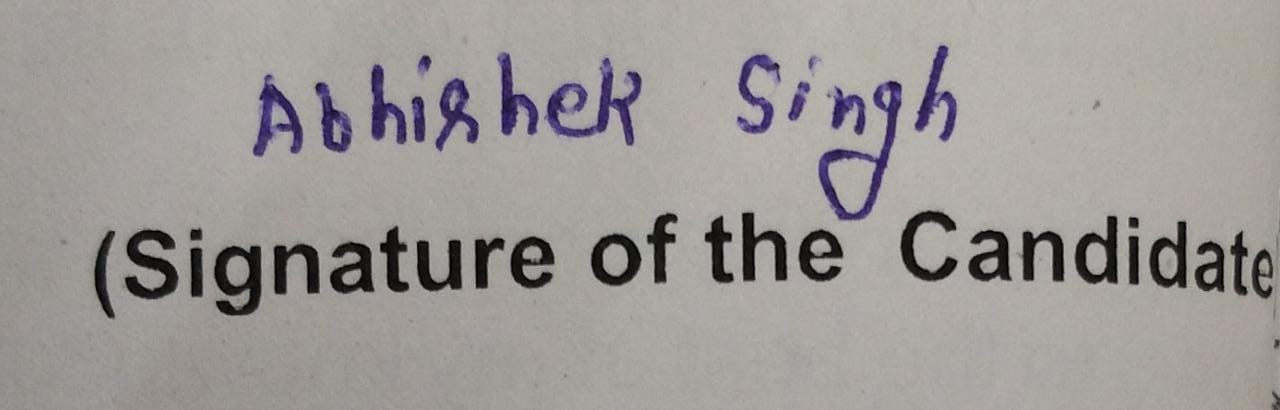 Abhishek Singh
(Signature of the Candidate